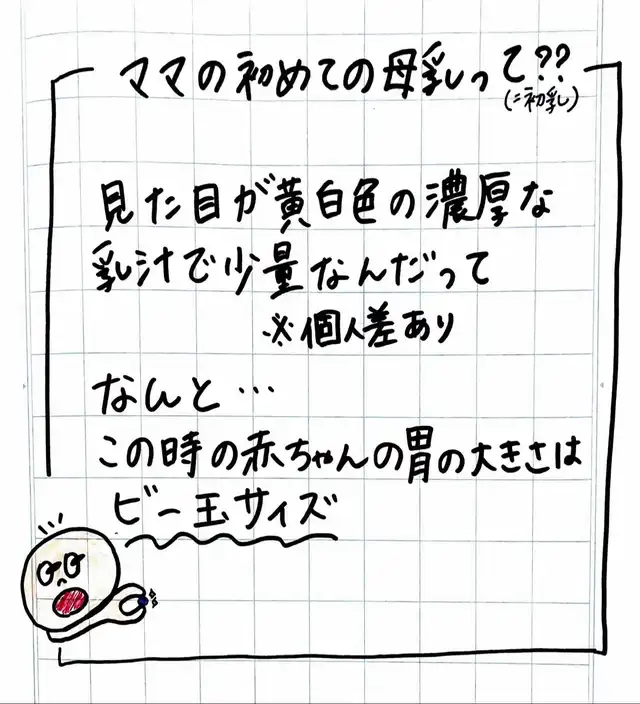 ママの初めての母乳って??
(=初乳)
見た目が黄白色の濃厚な
乳汁で少量なんだって
※個人差あり
なんと…
この時の赤ちゃんの胃の大きさは
ビー玉サイズ